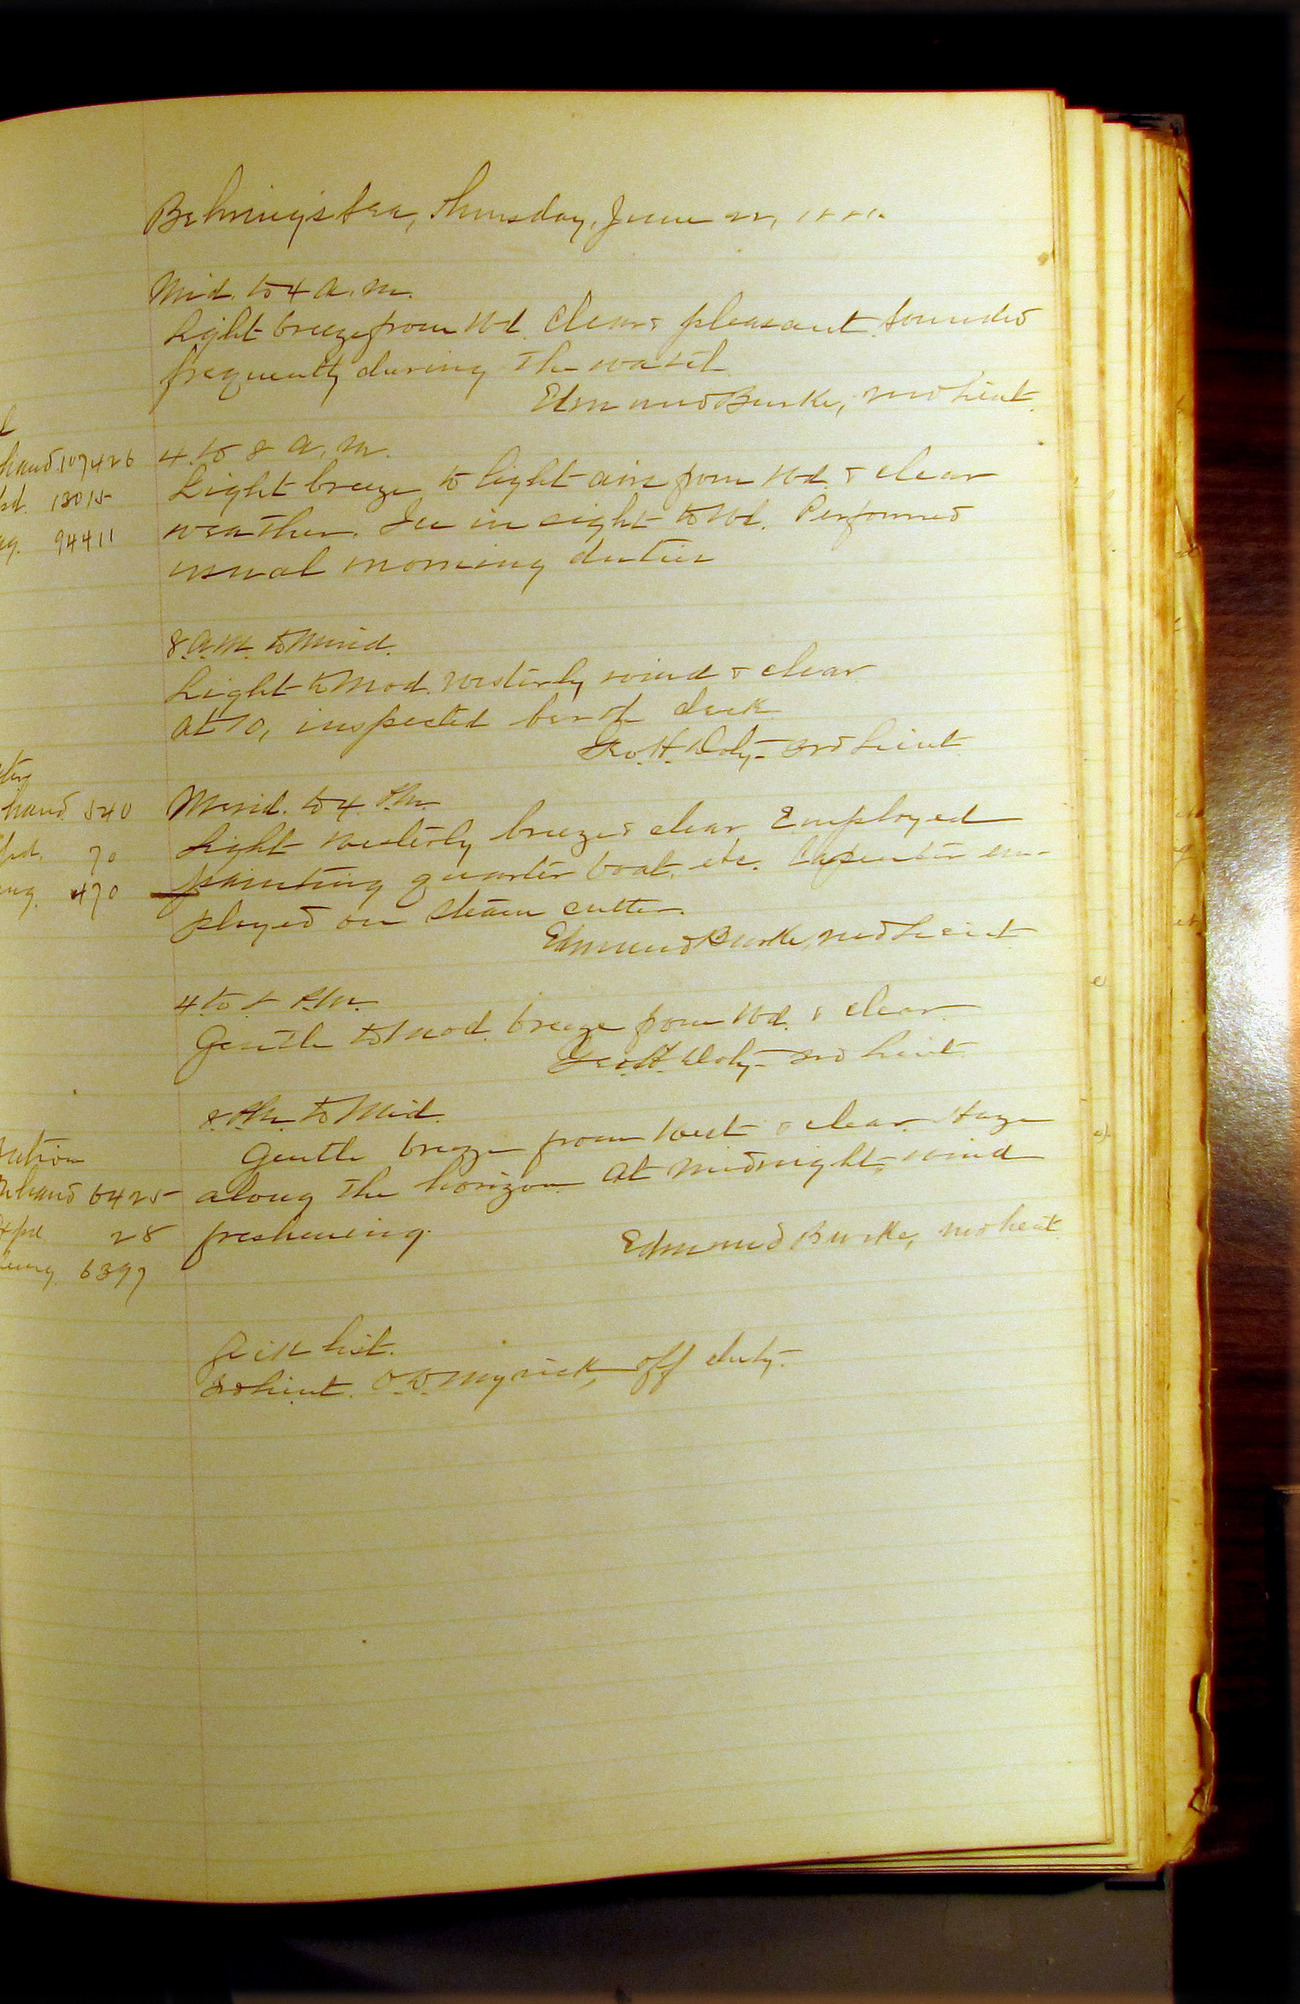 Behring's Sea, Thursday, June 22, 1881.
Mid. to 4 a.m.
Light breeze from Wd. Clear & pleasant. Sounded
frequently during the watch
Edmund Burke, 2nd Lieut.
hand 107426
13015
94411
4 to 8 A.M.
Light breeze to light airs from Wd. & clear
weather. Ice in sight to Wd. Performed
usual morning duties
8 A.M. to Merid.
Light to Mod. westerly wind & clear
At 10, inspected berth deck
Geo. H. Doty 3rd Lieut.
hand 540
70
470
Merid. to 4 P.M.
Light westerly breeze & clear Employed
painting quarter boat, etc. Carpenter em-
ployed on steam cutter.
Edmund Burke, 2nd Lieut
4 to 8 P.M.
Gentle to Mod. breeze from Wd. & clear.
Geo. H. Doty 3rd Lieut.
8 P.M. to Mid.
Gentle breeze from West & clear. Haze
along the horizon At midnight, wind
freshening.
Edmund Burke, 2nd Lieut.
hand 6425
28
6397
Sick List.
2d Lieut. O. D. Myrick, off duty.